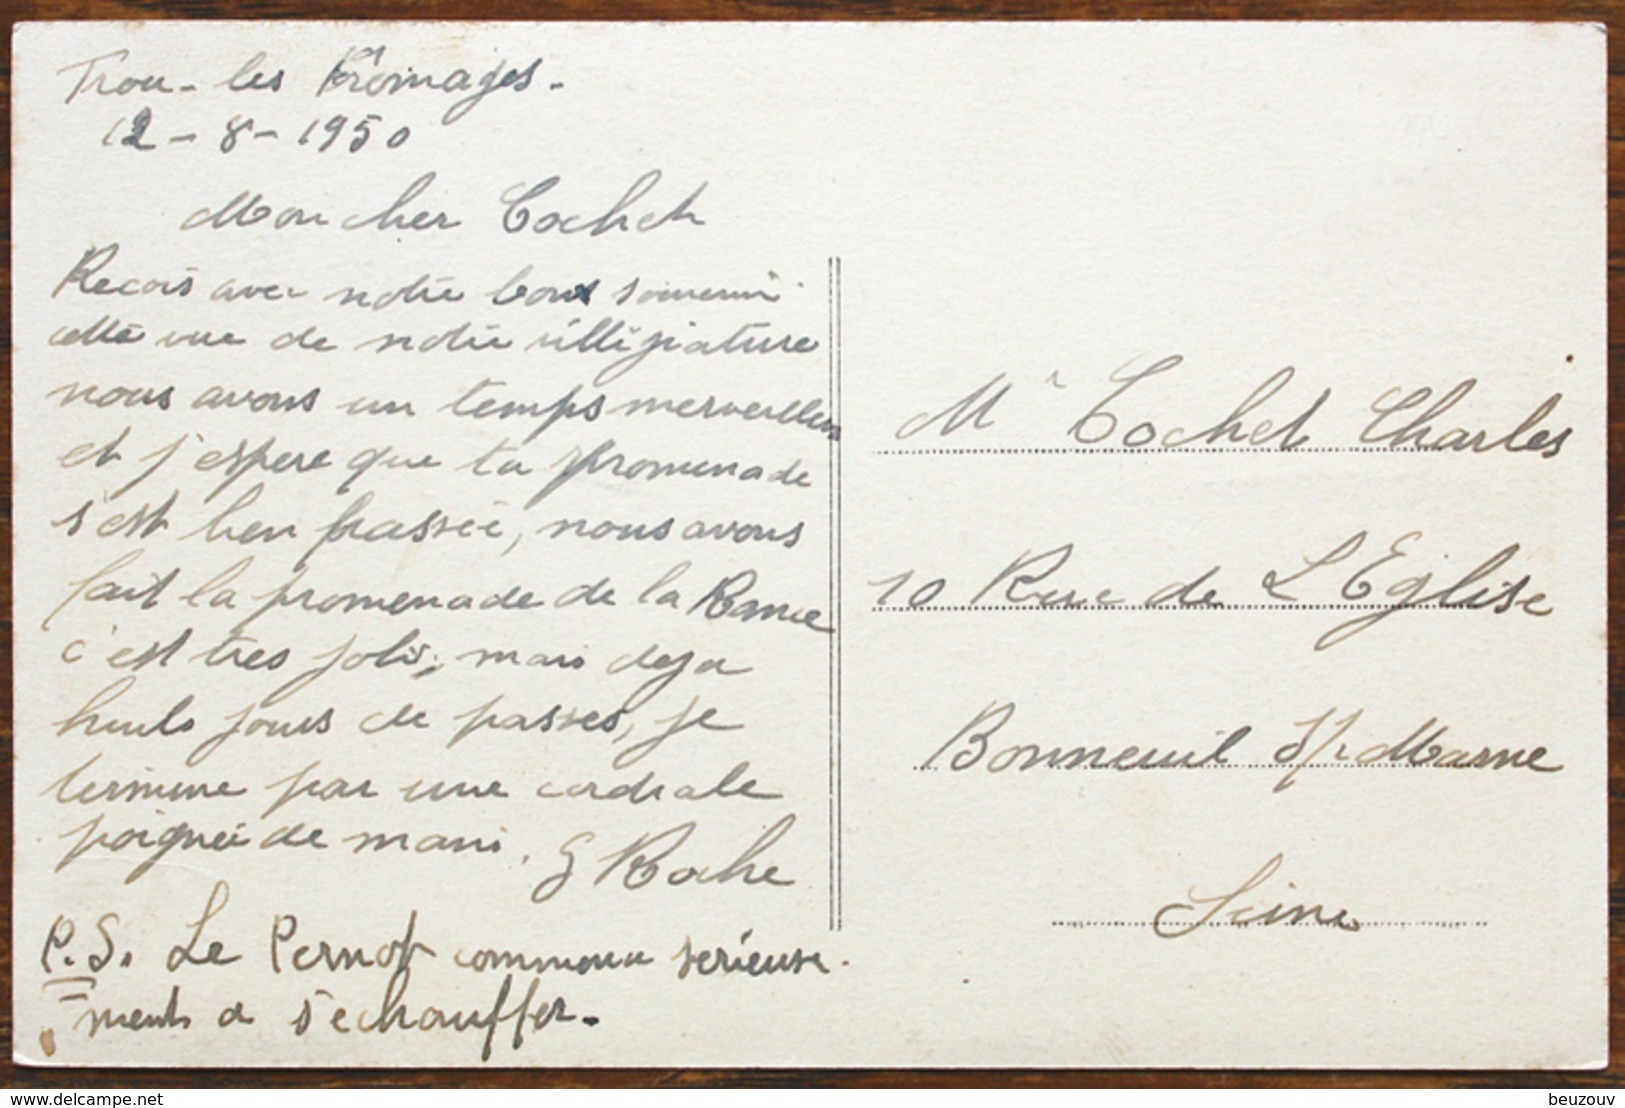 Trou - les Fromages -
12 - 8 - 1950
Mon cher Cochet
Recois avec notre bon souvenir
cette vue de notre villégiature
nous avons un temps merveilleux
et j'espere que ta promenade
s'est bien passée, nous avons
fait la promenade de la Rance
c'est tres joli, mais deja
huit jours de passes, je
termine par une cordiale
poignée de main. G Roche
P.S. Le Pernot commence serieuse-
ments a s'echauffer. -
Mr Cochet Charles
10 Rue de L'Eglise
Bonneuil s/ Marne
Seine
www.delcampe.net
beuzouv